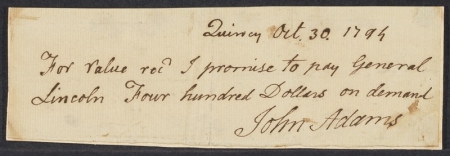 Quincy Oct. 30. 1794
For value recd I promise to pay General
Lincoln Four hundred Dollars on demand
John Adams